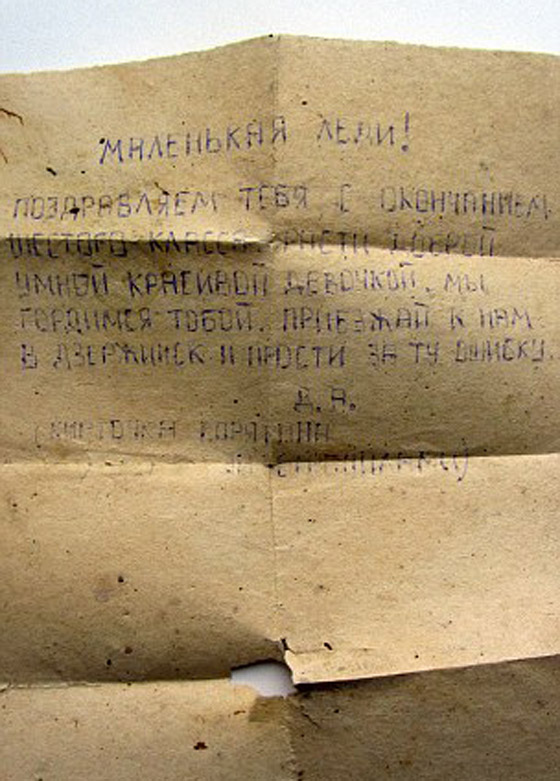 МАЛЕНЬКАЯ ЛЕДИ!
ПОЗДРАВЛЯЕМ ТЕБЯ С ОКОНЧАНИЕМ
ШЕСТОГО КЛАССА РАСТИ ДОБРОЙ
УМНОЙ КРАСИВОЙ ДЕВОЧКОЙ. МЫ
ГОРДИМСЯ ТОБОЙ. ПРИЕЗЖАЙ К НАМ
В ДЗЕРЖИНСК И ПРОСТИ ЗА ТУ
Д.А.